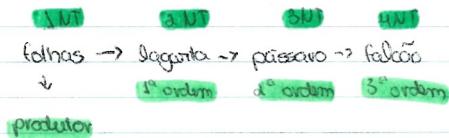 1NT 2NT 3NT 4NT
folhas → lagarta → pássaro → falcão
↓ 1ª ordem 2ª ordem 3ª ordem
produtor